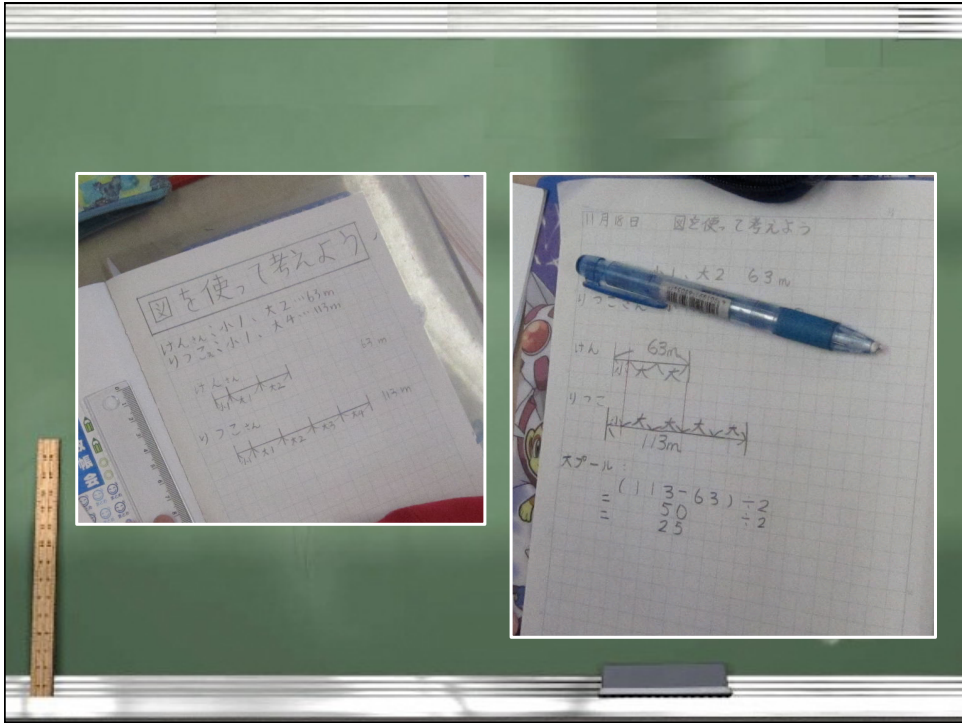 図を使って考えよう
けんさん:小1、大2…63m
りつこさん:小1、大4…113m
63m
けんさん
小 大1 大2
113m
りつこさん
小 大1 大2 大3 大4
11月18日 図を使って考えよう
大2 63m
りつこさん
けん 63m
小 大 大
りつこ
小 大 大 大 大
113m
大プール
(113-63)÷2
= 50 ÷2
= 25